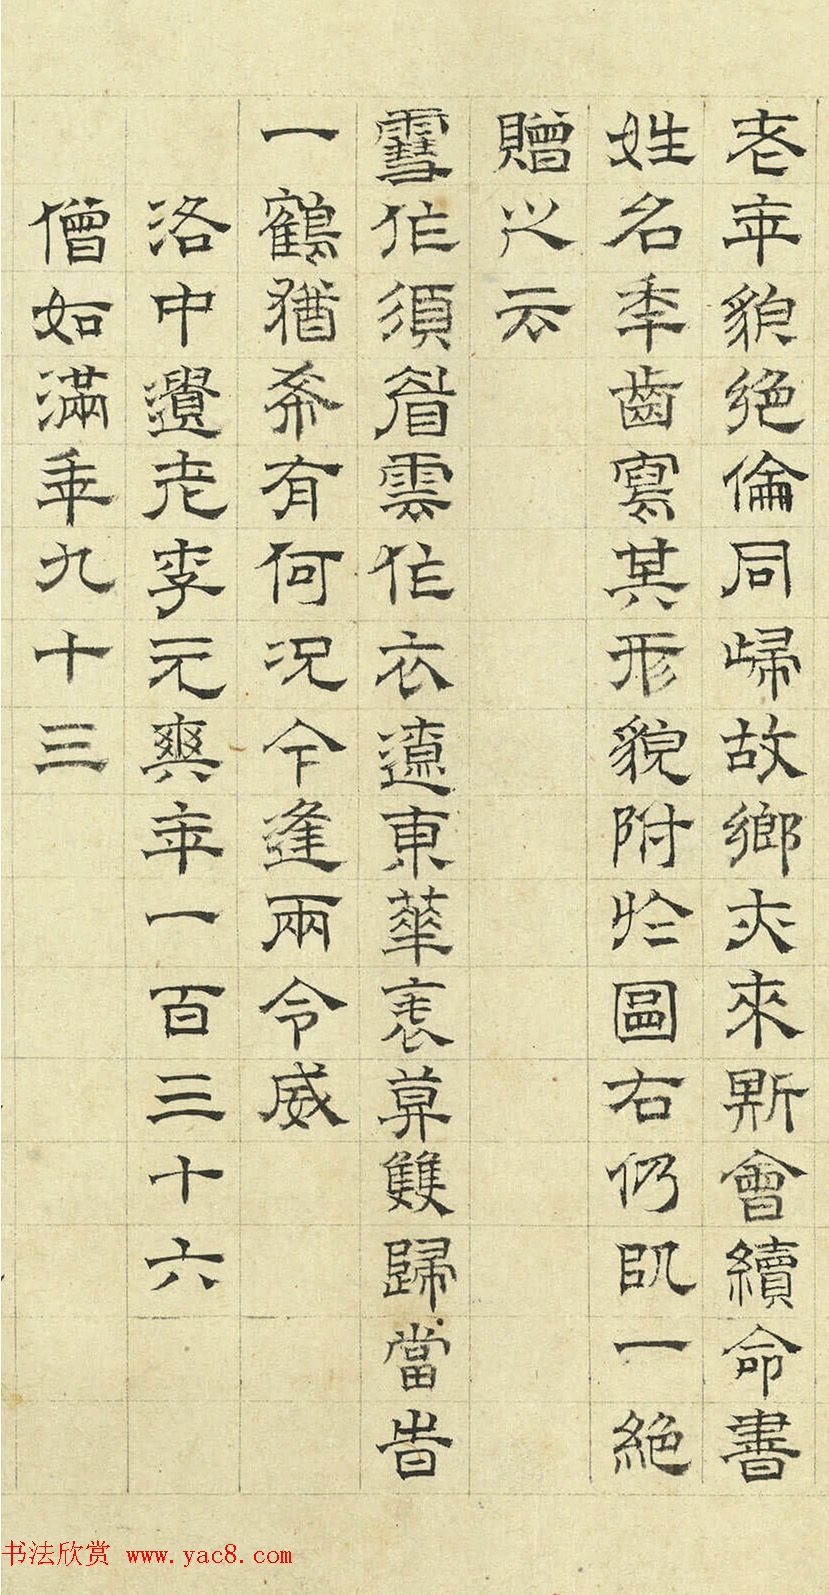 老年貌絕倫同歸故鄉亦來斯會續命書
姓名年齒寫其形貌附於圖右仍以一絕
贈之云
雪作須眉雲作衣遼東華表莫雙歸當旹
一鶴猶希有何況今逢兩令威
洛中遺老李元爽年一百三十六
僧如滿年九十三
书法欣赏 www.yac8.com